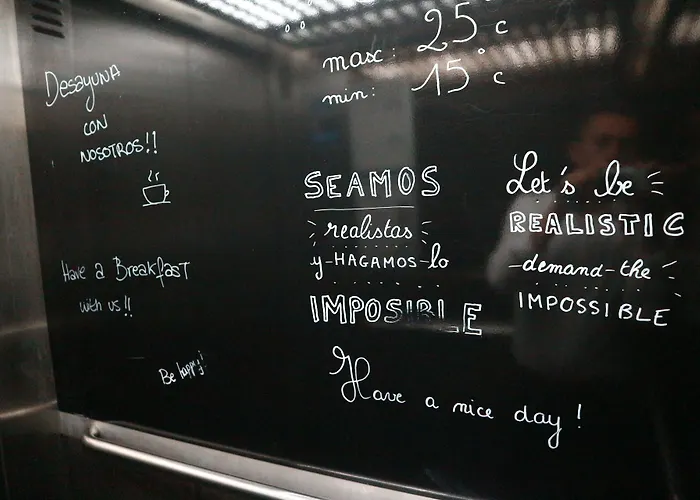 Desayuna
CON
NOSOTROS!!
Have a Breakfast
with us!!
Be happy!
max: 25°c
min: 15°c
SEAMOS
realistas
y-HAGAMOS-lo
IMPOSIBLE
Let's be
REALISTIC
-demand-the
IMPOSSIBLE
Have a nice day!